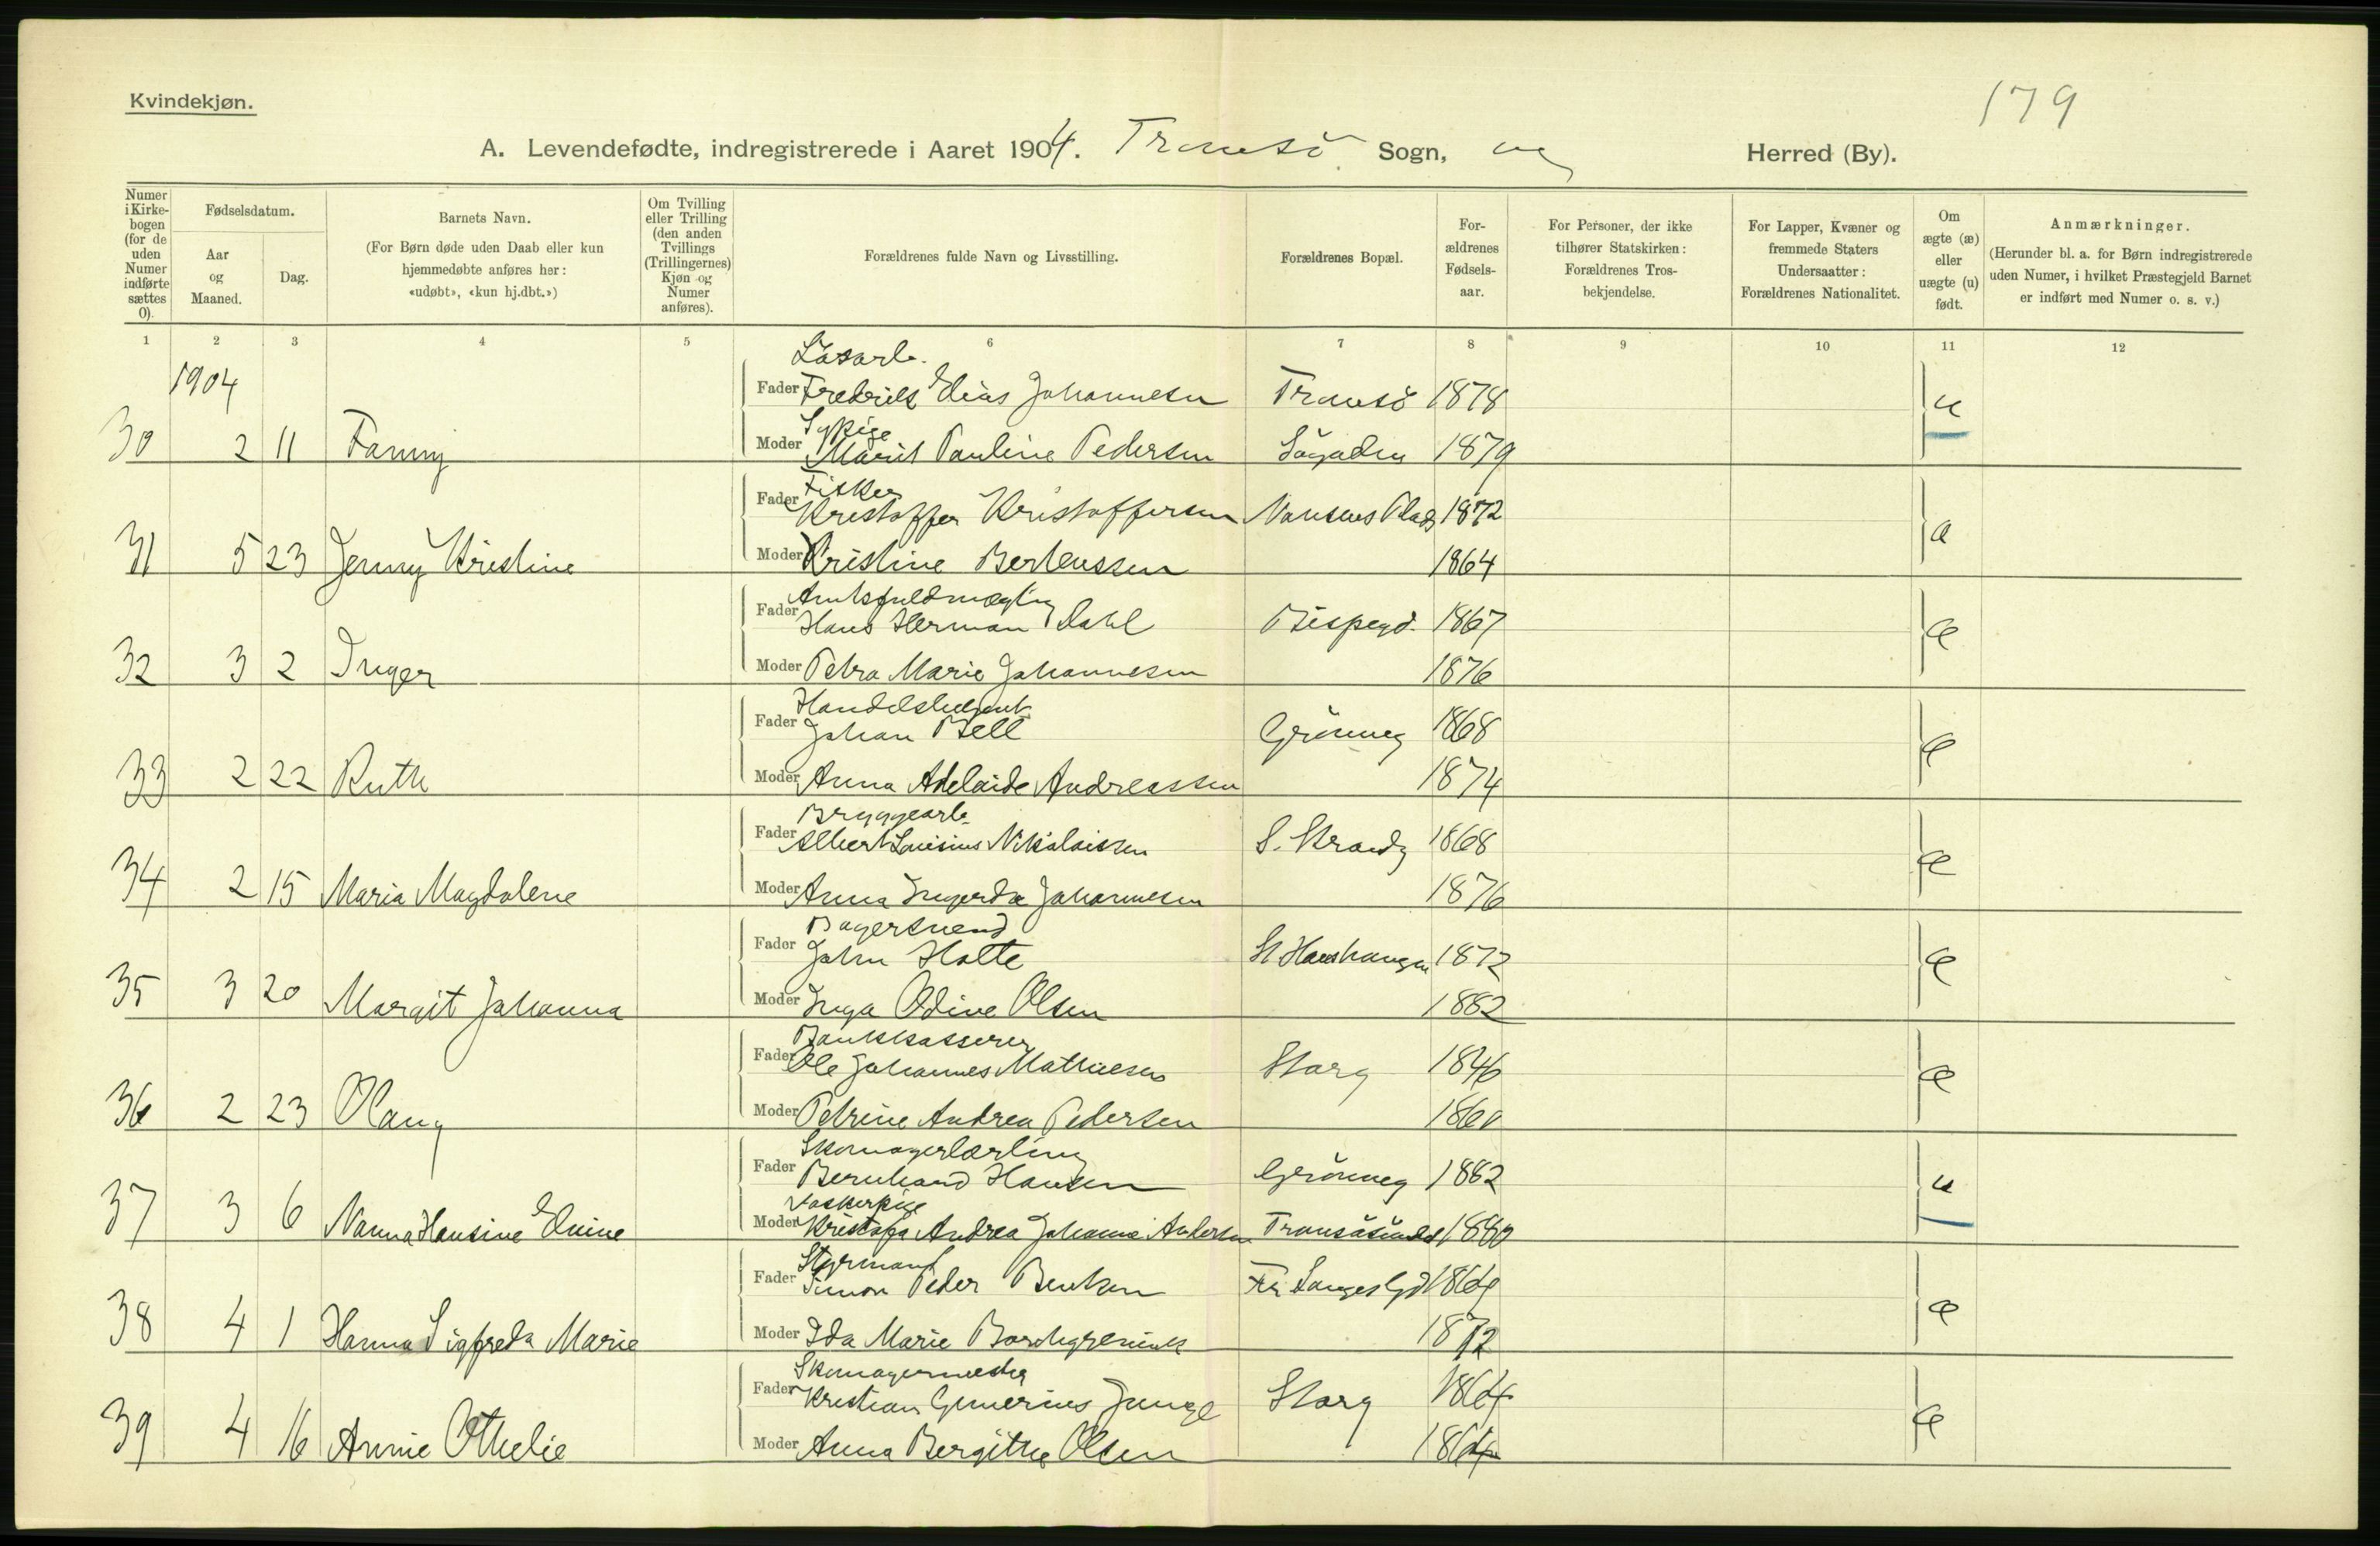 179
Kvindekjøn.
A. Levendefødte, indregistrerede i Aaret 1904. Tromsö Sogn, og Herred (By).
Numer i Kirke-bogen (for de uden Numer indførte sættes 0).
Fødselsdatum.
Aar og Maaned.
Dag.
Barnets Navn.
(For Børn døde uden Daab eller kun hjemmedøbte anføres her: «udøbt», «kun hj.dbt.»)
Om Tvilling eller Trilling (den anden Tvillings (Trillingernes) Kjøn og Numer anføres).
Forældrenes fulde Navn og Livsstilling.
Forældrenes Bopæl.
For-ældrenes Fødsels-aar.
For Personer, der ikke tilhører Statskirken: Forældrenes Tros-bekjendelse.
For Lapper, Kvæner og fremmede Staters Undersaatter: Forældrenes Nationalitet.
Om ægte (æ) eller uægte (u) født.
Anmærkninger.
(Herunder bl. a. for Børn indregistrerede uden Numer, i hvilket Præstegjeld Barnet er indført med Numer o. s. v.)
1 2 3 4 5 6 7 8 9 10 11 12
1904
Løsarb.
Fader Fredrik Elias Johannesen Tromsö 1878 u
Sypige
30 2 11 Fanny Moder Marit Pauline Pedersen Sögaden 1879
Fisker
Fader Kristoffer Kristoffersen Nansens Plads 1872 æ
31 5 23 Jenny Kristine Moder Kristine Berteussen 1864
Amtsfuldmægtig
Fader Hans Herman Dahl Bispegd. 1867 æ
32 3 2 Inger Moder Petra Marie Johannesen 1876
Handelsbetjent
Fader Johan Bell Grönneg 1868 æ
33 2 22 Ruth Moder Anna Adelaide Andreassen 1874
Bryggearb.
Fader Albert Lousius Nikolaisen S. Strandg 1868 æ
34 2 15 Maria Magdalene Moder Anna Ingerda Johannesen 1876
Bagersvend
Fader John Holte St Hanshaugen 1872 æ
35 3 20 Margit Johanna Moder Inga Odine Olsen 1882
Bankkasserer
Fader Ole Johannes Mathiesen Storg 1846 æ
36 2 23 Olaug Moder Petrine Andrea Pedersen 1860
Skomagerlærling
Fader Bernhard Hansen Grönneg 1882 u
Vaskerpige
37 3 6 Nanna Hansine Elvine Moder Kristofa Andrea Johanna Andersen Tromsösundet 1880
Styrmand
Fader Simon Peder Bentsen Fr. Langes Gd 1864 æ
38 4 1 Hanna Sigfreda Marie Moder Ida Marie Borchgrevink 1872
Skomagermester
Fader Kristian Gunerius Junge Storg 1864 æ
39 4 16 Annie Othelie Moder Anna Bergitte Olsen 1864